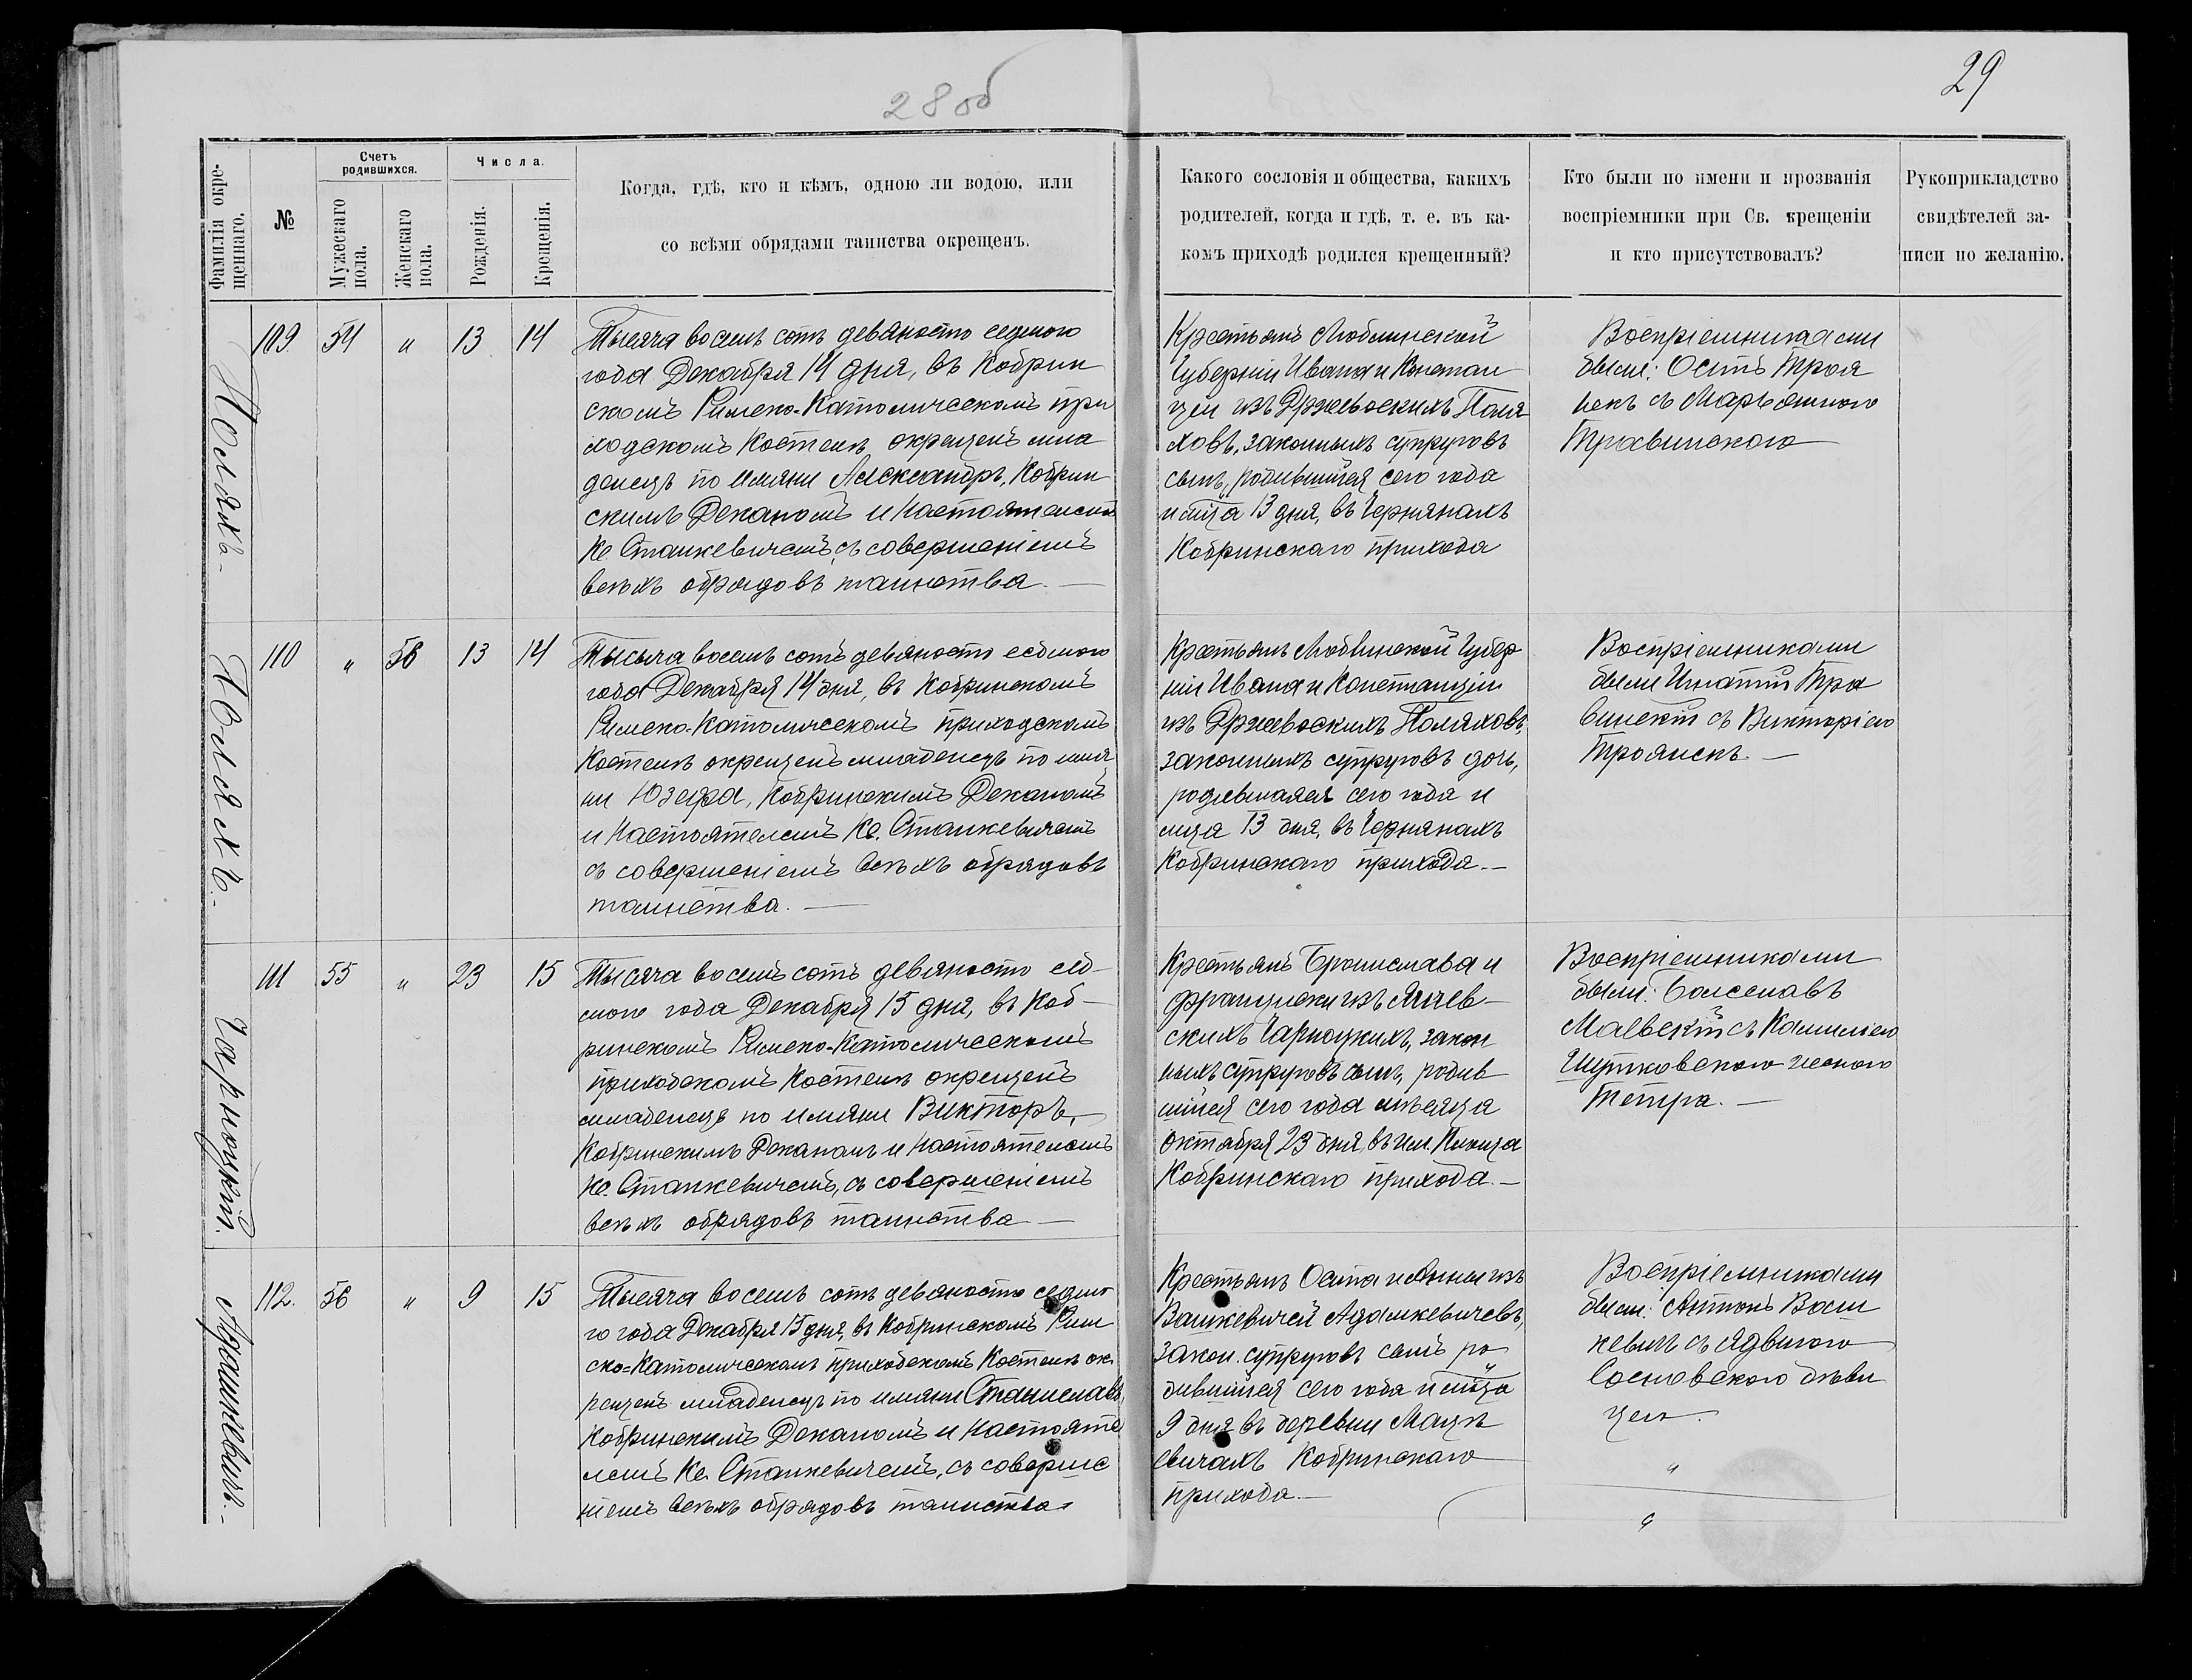 28 об
29
Фамилія окре-
щеннаго.
№
Счетъ
родившихся.
Мужескаго
пола.
Женскаго
пола.
Числа.
Рожденія.
Крещенія.
Когда, гдѣ, кто и кѣмъ, одною ли водою, или
со всѣми обрядами таинства окрещенъ.
Какого сословія и общества, какихъ
родителей, когда и гдѣ, т. е. въ ка-
комъ приходѣ родился крещенный?
Кто были по имени и прозванія
воспріемники при Св. крещеніи
и кто присутствовалъ?
Рукоприкладство
свидѣтелей за-
писи по желанію.
Полякъ-
109. 54 „ 13 14
Тысяча восемь сотъ девяносто седмого
года Декабря 14 дня, въ Кобрин
скомъ Римско-Католическомъ при
ходскомъ Костелѣ окрещенъ мла
денецъ по имяни Александръ, Кобрин
скимъ Деканомъ и Настоятелемъ
Кс Станкевичемъ, съ совершеніемъ
всѣхъ обрядовъ таинства. —
Крестьянъ Люблинской
Губерніи Ивана и Констан
ціи изъ Држевоскихъ Поля
ховъ, законныхъ супруговъ
сынъ, родившійся сего года
и мца 13 дня, въ Чернянахъ
Кобринскаго прихода
Воспріемниками
были: Осипъ Троя
некъ съ Марьянною
Травинскою
Полякъ-
110 „ 56 13 14
Тысыча восемь сотъ девяносто седмого
года Декабря 14 дня, въ Кобринскомъ
Римско-Католическомъ приходскомъ
Костелѣ окрещенъ младенецъ по имя
ни Юзефа, Кобринскимъ Деканомъ
и Настоятелемъ Кс. Станкевичемъ
съ совершеніемъ всѣхъ обрядовъ
таинства. —
Крестьянъ Люблинской Губер
ніи Ивана и Констанціи
изъ Држевоскихъ Поляховъ,
законныхъ супруговъ дочь,
родившаяся сего года и
мца 13 дня, въ Чернянахъ
Кобринскаго прихода. —
Воспріемниками
были Игнатій Тра
винскій съ Викторіею
Троянекъ. —
Чарноцкій.
111 55 „ 23 15
Тысяча восемь сотъ девяносто сед-
мого года Декабря 15 дня, въ Коб-
ринскомъ Римско-Католическомъ
приходскомъ Костелѣ окрещенъ
младенецъ по имяни Викторъ, —
Кобринскимъ Деканомъ и Настоятелемъ
Кс. Станкевичемъ, съ совершеніемъ
всѣхъ обрядовъ таинства —
Крестьянъ Бронислава и
Францишки изъ
скихъ Чарноцкихъ, закон
ныхъ супруговъ сынъ, родив
шійся сего года мѣсяца
Октября 23 дня, въ им.
Кобринскаго прихода. —
Воспріемниками
были: Болеславъ
съ Камиліею
Шутковскою женою
Петра. —
Адамкевичъ. -
112. 56 „ 9 15
Тысяча восемь сотъ девяносто седмо
го года Декабря 15 дня, въ Кобринскомъ Рим
ско=Католическомъ приходскомъ Костелѣ ок
рещенъ младенецъ по имяни Станиславъ,
Кобринскимъ Деканомъ и Настояте
лемъ Кс. Станкевичемъ, съ соверше
ніемъ всѣхъ обрядовъ таинства
Крестьянъ Осипа и Анны изъ
Вашкевичей Адамкевичевъ,
закон. супруговъ сынъ ро
дившійся сего года и мца
9 дня въ деревни Мацк
евичахъ Кобринскаго
прихода. —
Воспріемниками
были: Антонъ Ваш
кевичъ съ Ядвигою
Сосновскою дѣви
цею.